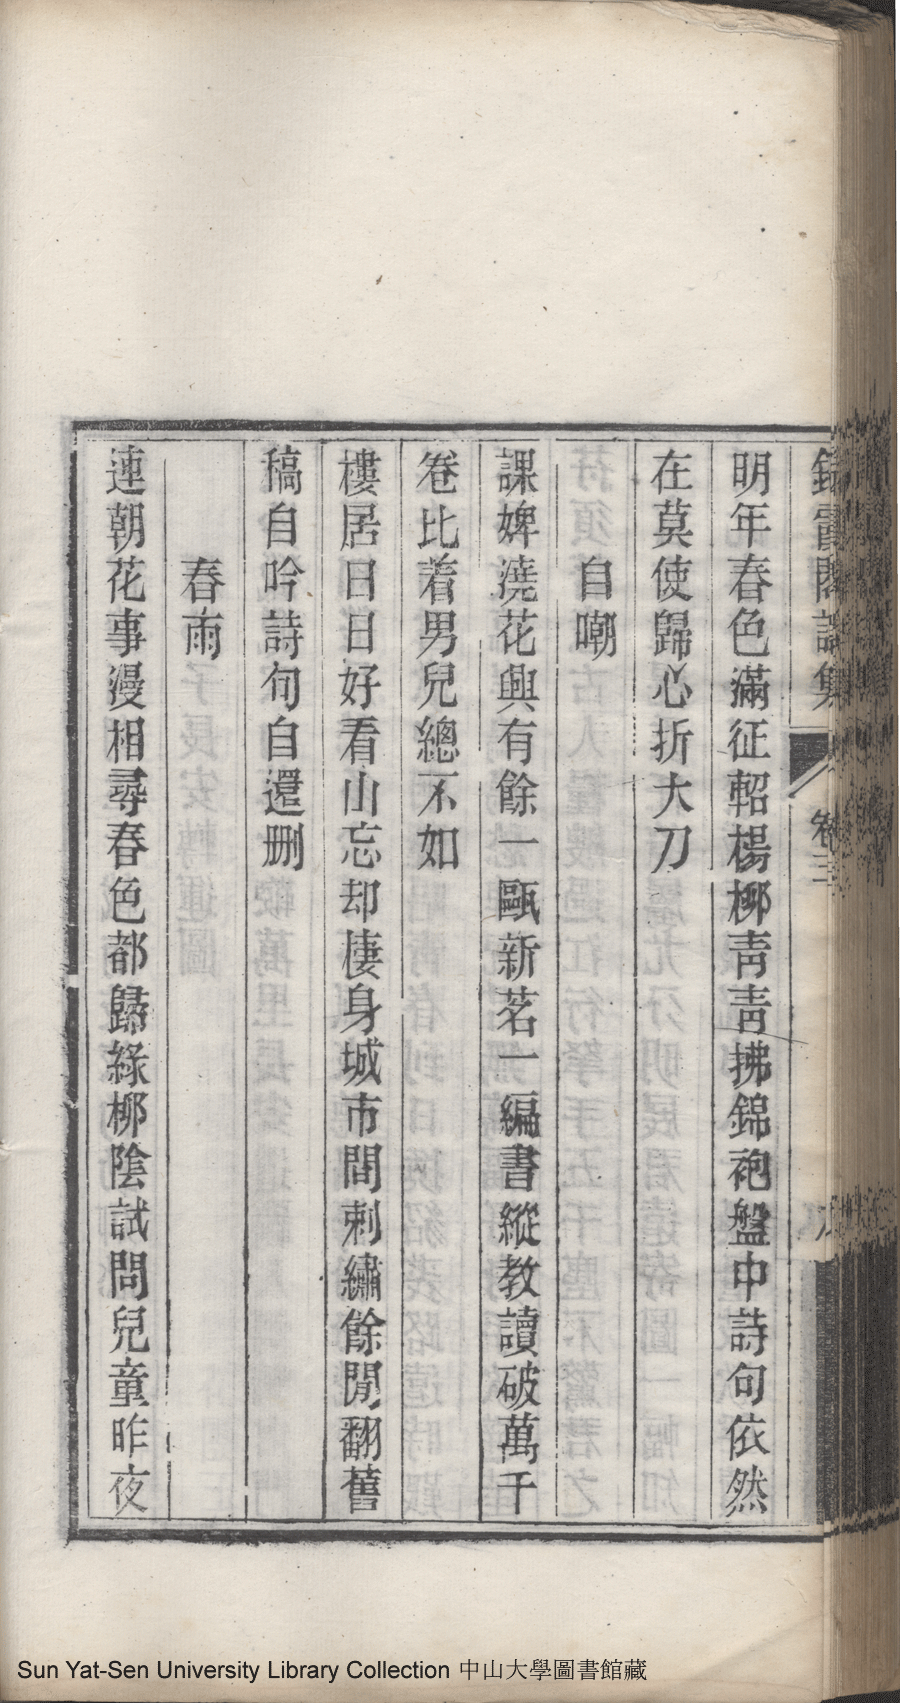 明年春色滿征軺楊柳靑靑拂錦袍盤中詩句依然
在莫使歸心折大刀
自嘲
課婢澆花興有餘一甌新茗一編書縱教讀破萬千
卷比着男兒總不如
樓居日日好看山忘却棲身城市間刺繡餘閒翻舊
稿自吟詩句自還删
春雨
連朝花事漫相尋春色都歸綠柳陰試問兒童昨夜
Sun Yat-Sen University Library Collection 中山大學圖書館藏